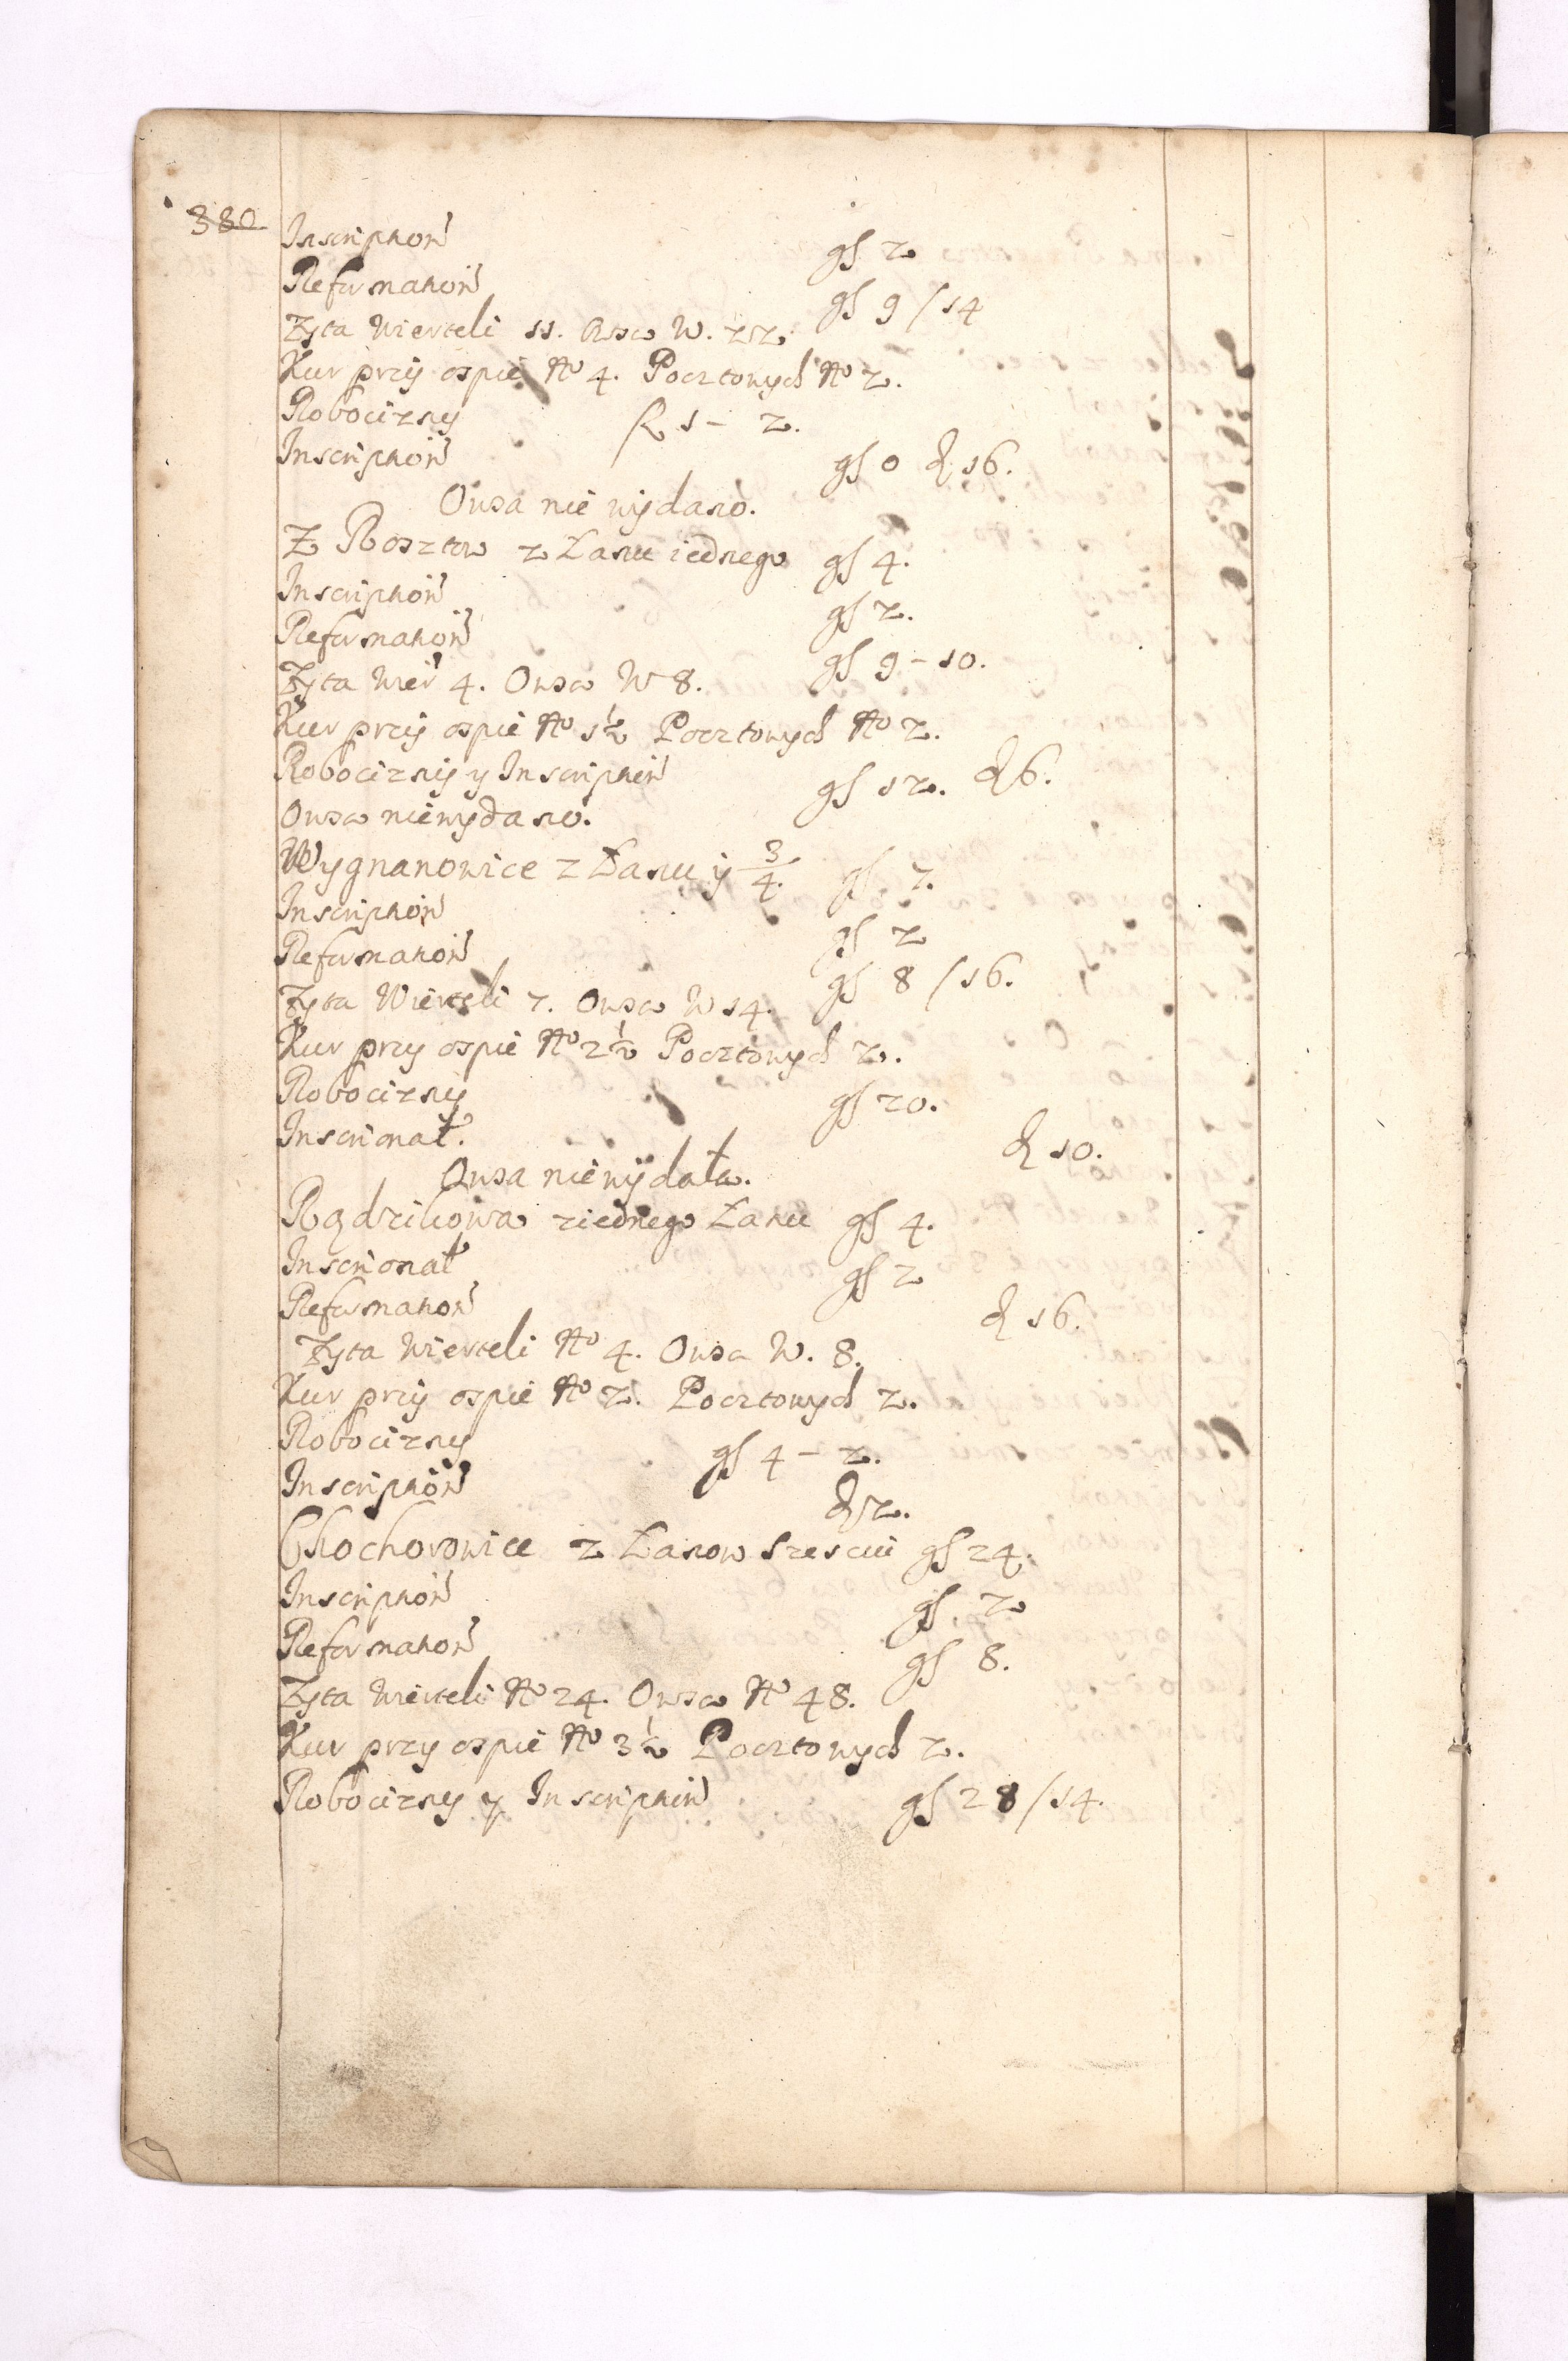 380
Inscriptioń gſ 2
Reformatioń gſ 9/14
Żyta Wierteli 11. Owsa W. 22.
Kur przÿ ospie Nº 4. Pocztowych Nº 2.
Robociznÿ 1 – 2.
Inscriptioń gſ 0 ₰ 16.
Owsa nie wÿdano.
Z Rosztow z Łanu iednego gſ 4.
Inscriptioń gſ 2.
Reformatioń gſ 9 – 10.
Żyta Wier 4. Owsa W 8.
Kur przÿ ospie Nº 1½ Pocztowych Nº 2.
Robociznÿ y Inscriptioń gſ 12. ₰ 6.
Owsa niewydano.
Wygnanowice z Łanu ÿ 3/4. gſ 7.
Inscriptioń gſ 2
Reformatioń gſ 8/16.
Żyta Wierteli 7. Owsa W 14.
Kur przy ospie Nº 2½ Pocztowych 2.
Robociznÿ gſ 20.
Inscrionał. ₰ 10.
Owsa niewÿdała.
Rądzikowa ziednego Łanu gſ 4.
Inscrionał gſ 2
Reformatioń ₰ 16.
Żyta Wierteli Nº 4. Owsa W. 8.
Kur przÿ ospie Nº 2. Pocztowych 2.
Robocizny gſ 4 – 2.
Inscriptioń ₰ 12.
Chochorowice z Łanow szesciu gſ 24.
Inscriptioń gſ 2
Reformatioń gſ 8.
Żyta Wierteli Nº 24. Owsa Nº 48.
Kur przy ospie Nº 3½ Pocztowych 2.
Robocizny y Inscriptioń gſ 28/14.